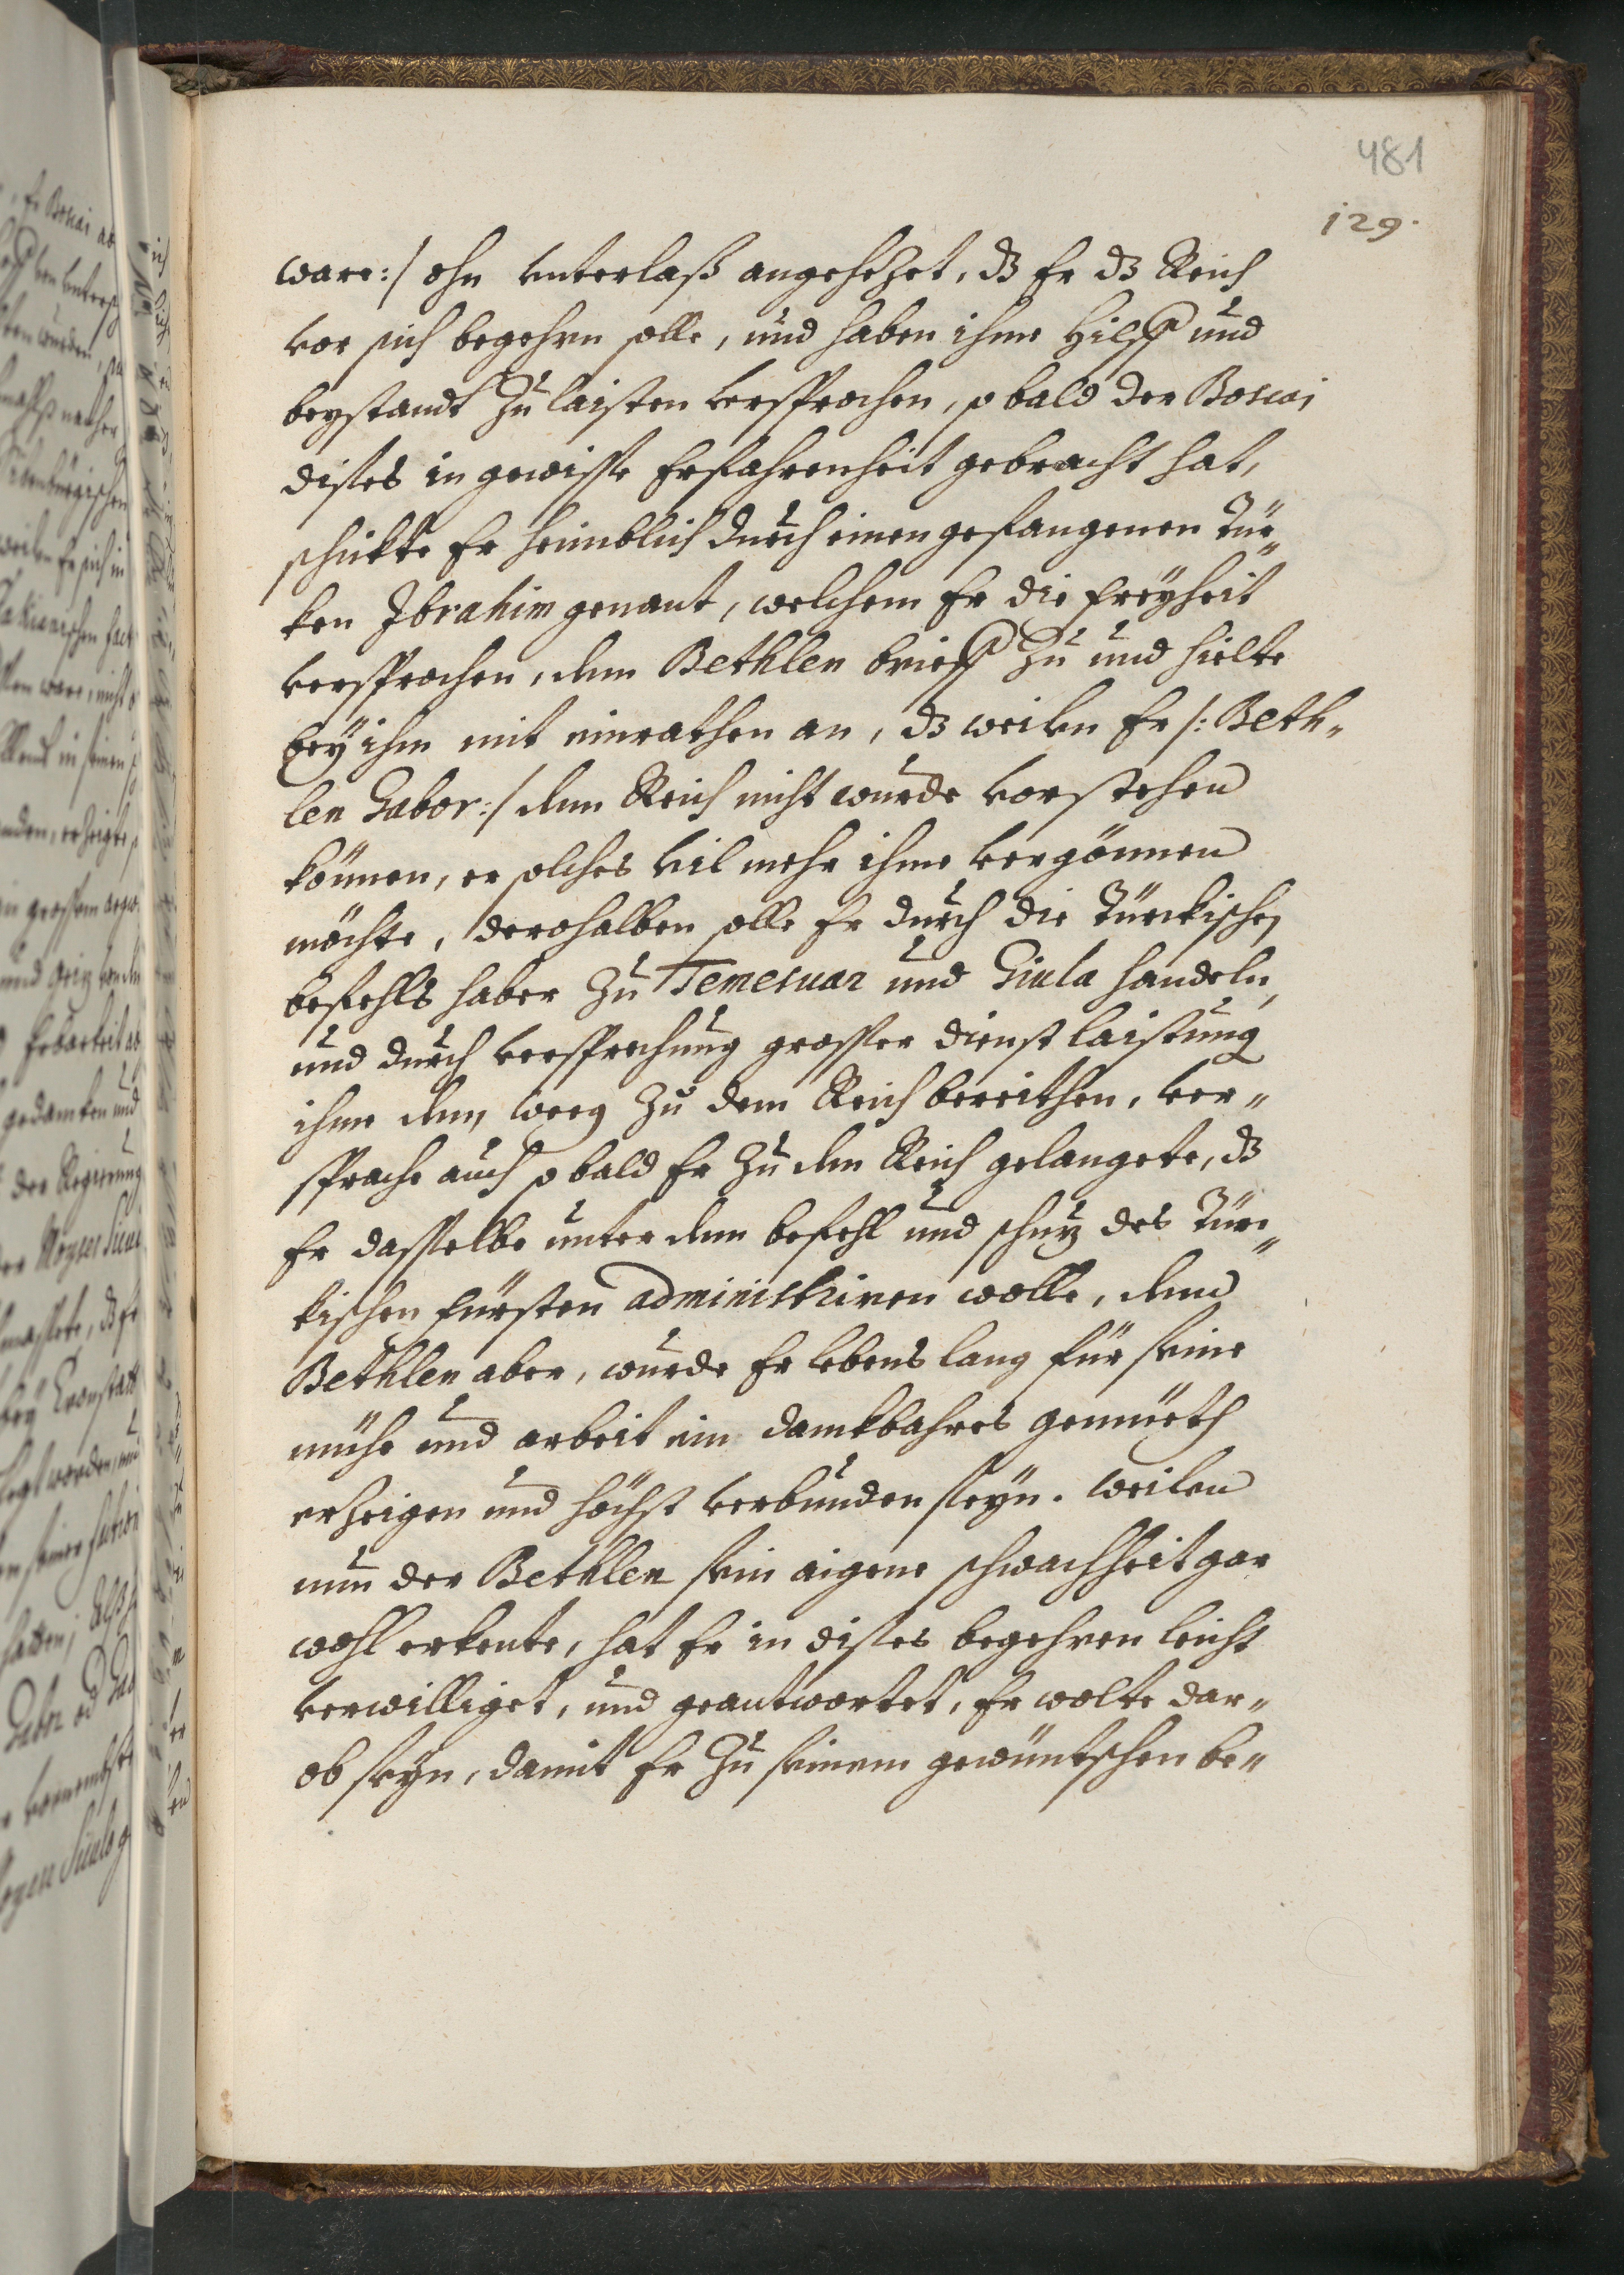 481
129.
ware:/ ohn unterlaß angehezet, dz Er dz Reich
vor sich begehrn solle, und haben ihme Hilff und
beystandt zu laisten versprochen, so bald der Boscai
dises in gewisse Erfahrenheit gebracht hat,
schikte Er heimblich durch einen gefangenen Tür„
ken Ibrahim genant, welchem Er die freyheit
versprochen, dem Bethlen brieff zu und hielte
bey ihm mit einrathen an, dz weilen Er /: Beth„
len Gabor:/ dem Reich nicht wurde vorstehen
können, er solches vil mehr ihme vergönnen
möchte, derohalben solle Er durch die Türckischen
befehls haber zu Temesuar und Giula handeln,
und durch versprechung grosser dienst laistung
ihme den weeg zu dem Reich bereithen, ver„
sprache auch so bald Er zu dem Reich gelangete, dz
Er dasselbe unter dem befehl und schuz des Tür„
kischen fürsten administriren wolle, dem
Bethlen aber, wurde Er lebens lang für seine
mühe und arbeit ein dankbahres gemüeth
erzeigen und höchst verbunden seyn. weilen
nun der Bethlen sein aigene schwachheit gar
wohl erkente, hat Er in dises begehren leicht
verwilliget, und geantwortet, Er wolte dar„
ob seyn, damit Er zu seinem gewüntschen be„